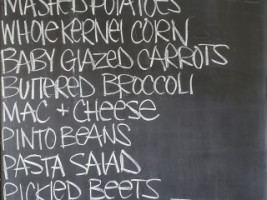 MASHED POTATOES
WHOLE KERNEL CORN
BABY GLAZED CARROTS
BUTTERED BROCCOLI
MAC + CHEESE
PINTO BEANS
PASTA SALAD
PICKLED BEETS